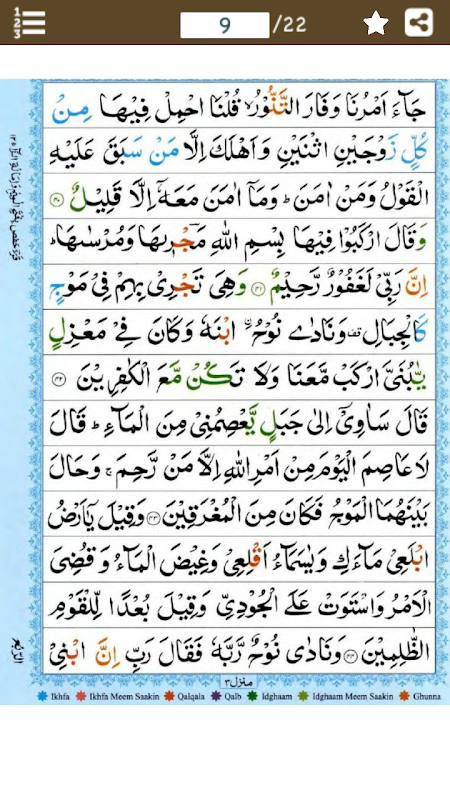 9 /22
جَآءَ اَمۡرُنَا وَفَارَ التَّنُّوۡرُۙ قُلۡنَا احۡمِلۡ فِيۡهَا مِنۡ
كُلٍّ زَوۡجَيۡنِ اثۡنَيۡنِ وَاَهۡلَكَ اِلَّا مَنۡ سَبَقَ عَلَيۡهِ
الۡقَوۡلُ وَمَنۡ اٰمَنَ ؕ وَمَاۤ اٰمَنَ مَعَهٗۤ اِلَّا قَلِيۡلٌ ﴿۴۰﴾
وَقَالَ ارۡكَبُوۡا فِيۡهَا بِسۡمِ اللّٰهِ مَجۡرٖٮهَا وَمُرۡسٰٮهَا ؕ
اِنَّ رَبِّىۡ لَغَفُوۡرٌ رَّحِيۡمٌ ﴿۴۱﴾ وَهِىَ تَجۡرِىۡ بِهِمۡ فِىۡ مَوۡجٍ
كَالۡجِبَالِ وَنَادٰى نُوۡحُ ۨابۡنَهٗ وَكَانَ فِىۡ مَعۡزِلٍ
يّٰبُنَىَّ ارۡكَبْ مَّعَنَا وَلَا تَكُنۡ مَّعَ الۡكٰفِرِيۡنَ ﴿۴۲﴾
قَالَ سَاٰوِىۡۤ اِلٰى جَبَلٍ يَّعۡصِمُنِىۡ مِنَ الۡمَآءِ ؕ قَالَ
لَا عَاصِمَ الۡيَوۡمَ مِنۡ اَمۡرِ اللّٰهِ اِلَّا مَنۡ رَّحِمَ ۚ وَحَالَ
بَيۡنَهُمَا الۡمَوۡجُ فَكَانَ مِنَ الۡمُغۡرَقِيۡنَ ﴿۴۳﴾ وَقِيۡلَ يٰۤاَرۡضُ
ابۡلَعِىۡ مَآءَكِ وَيٰسَمَآءُ اَقۡلِعِىۡ وَغِيۡضَ الۡمَآءُ وَقُضِىَ
الۡاَمۡرُ وَاسۡتَوَتۡ عَلَى الۡجُوۡدِىِّ وَقِيۡلَ بُعۡدًا لِّلۡقَوۡمِ
الظّٰلِمِيۡنَ ﴿۴۴﴾ وَنَادٰى نُوۡحٌ رَّبَّهٗ فَقَالَ رَبِّ اِنَّ ابۡنِىۡ
منزل ۳
Ikhfa Ikhfa Meem Saakin Qalqala Qalb Idghaam Idghaam Meem Saakin Ghunna